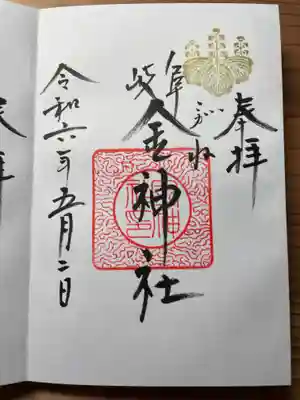 奉拝
岐阜
こがね
金神社
令和六年五月二日